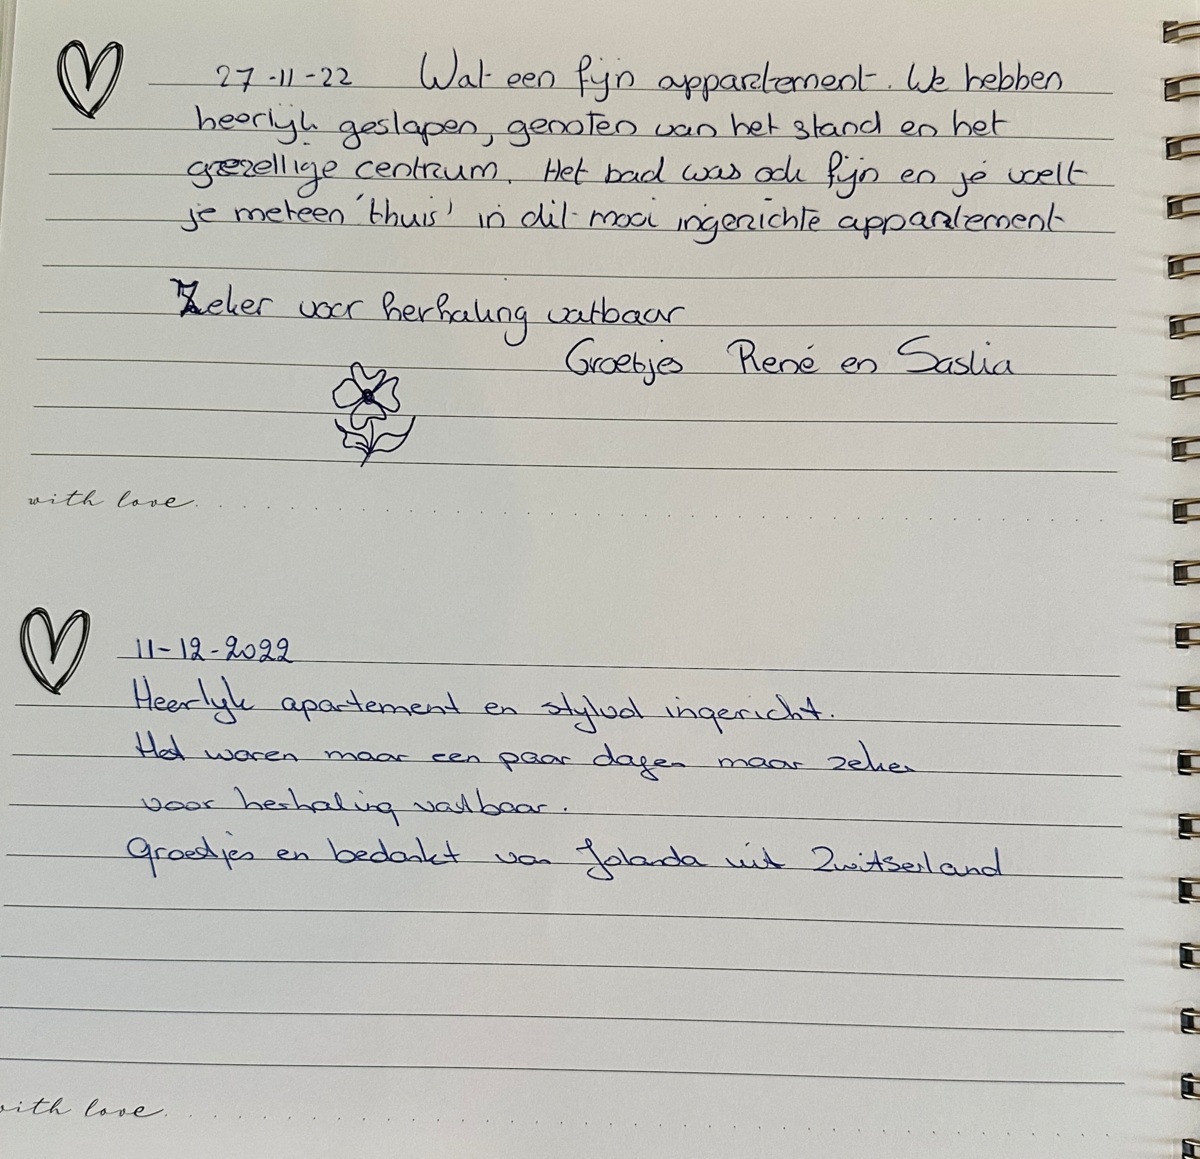 27-11-22 Wat een fijn appartement. We hebben
heerlijk geslapen, genoten van het strand en het
gezellige centrum. Het bad was ook fijn en je voelt
je meteen 'thuis' in dit mooi ingerichte appartement
Zeker voor herhaling vatbaar
Groetjes René en Saskia
with love
11-12-2022
Heerlyk apartement en stylvol ingericht.
Het waren maar een paar dagen maar zeker
voor herhaling vatbaar.
Groetjes en bedankt van Jolanda uit Zwitserland
with love